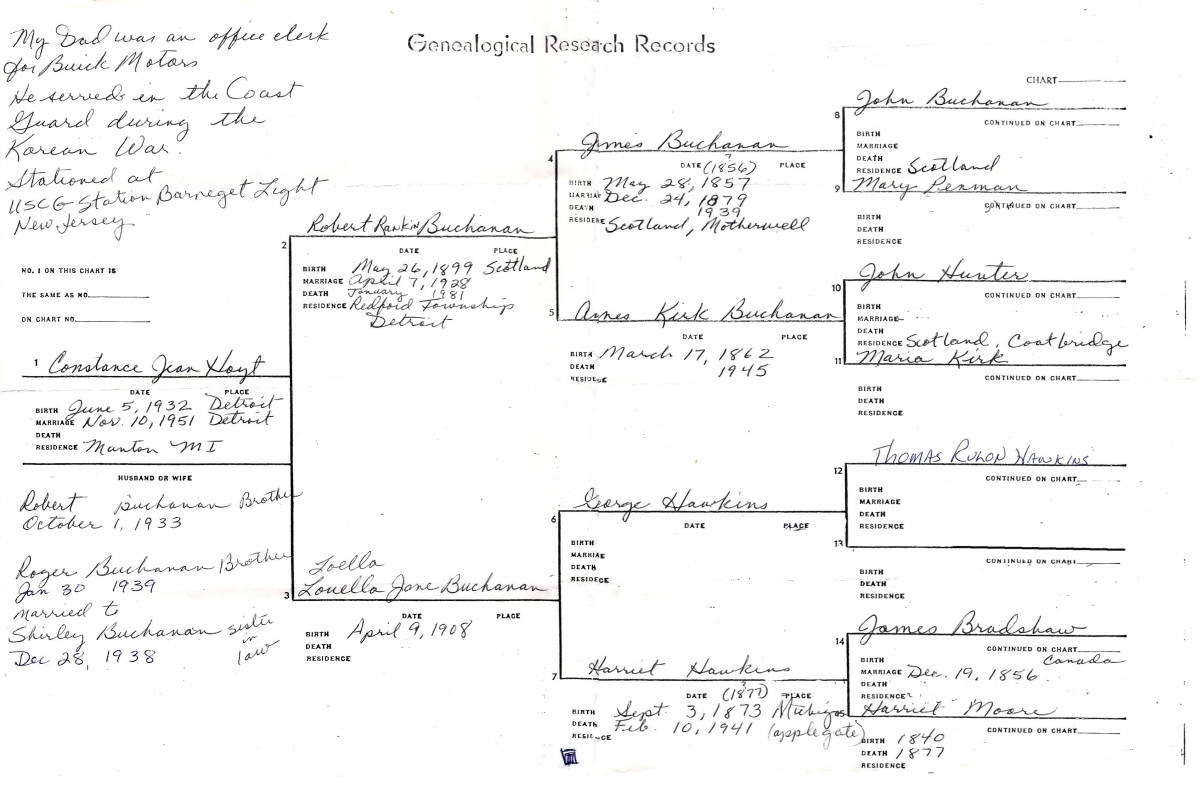 My Dad was an office clerk
for Buick Motors
He served in the Coast
Guard during the
Korean War.
Stationed at
USCG Station Barneget Light
New Jersey
Genealogical Research Records
NO. 1 ON THIS CHART IS
THE SAME AS NO.
ON CHART NO.
1 Constance Jean Hoyt
DATE PLACE
BIRTH June 5, 1932 Detroit
MARRIAGE Nov. 10, 1951 Detroit
DEATH
RESIDENCE Manton MI
HUSBAND OR WIFE
Robert Buchanan Brother
October 1, 1933
Roger Buchanan Brother
Jan 30 1939
married to
Shirley Buchanan sister in law
Dec 28, 1938
2 Robert Rankin Buchanan
DATE PLACE
BIRTH May 26, 1899 Scotland
MARRIAGE April 7, 1928
DEATH January 1981
RESIDENCE Redford Township
Detroit
Loella
3 Louella Jane Buchanan
DATE PLACE
BIRTH April 9, 1908
DEATH
RESIDENCE
4 James Buchanan
?
DATE (1856) PLACE
BIRTH May 28, 1857
MARRIAGE Dec. 24, 1879
DEATH 1939
RESIDENCE Scotland, Motherwell
5 Agnes Kirk Buchanan
DATE PLACE
BIRTH March 17, 1862
DEATH 1945
RESIDENCE
6 George Hawkins
DATE PLACE
BIRTH
MARRIAGE
DEATH
RESIDENCE
7 Harriet Hawkins
?
DATE (1877) PLACE
BIRTH Sept. 3, 1873 Michigan
DEATH Feb. 10, 1941 (applegate)
RESIDENCE
CHART
8 John Buchanan
CONTINUED ON CHART
BIRTH
MARRIAGE
DEATH
RESIDENCE Scotland
9 Mary Penman
CONTINUED ON CHART
BIRTH
DEATH
RESIDENCE
10 John Hunter
CONTINUED ON CHART
BIRTH
MARRIAGE
DEATH
RESIDENCE Scotland, Coatbridge
11 Maria Kirk
CONTINUED ON CHART
BIRTH
DEATH
RESIDENCE
12 THOMAS RULON HAWKINS
CONTINUED ON CHART
BIRTH
MARRIAGE
DEATH
RESIDENCE
13
CONTINUED ON CHART
BIRTH
DEATH
RESIDENCE
14 James Bradshaw
CONTINUED ON CHART
BIRTH Canada
MARRIAGE Dec. 19, 1856
DEATH
RESIDENCE
Harriet Moore
CONTINUED ON CHART
BIRTH 1840
DEATH 1877
RESIDENCE